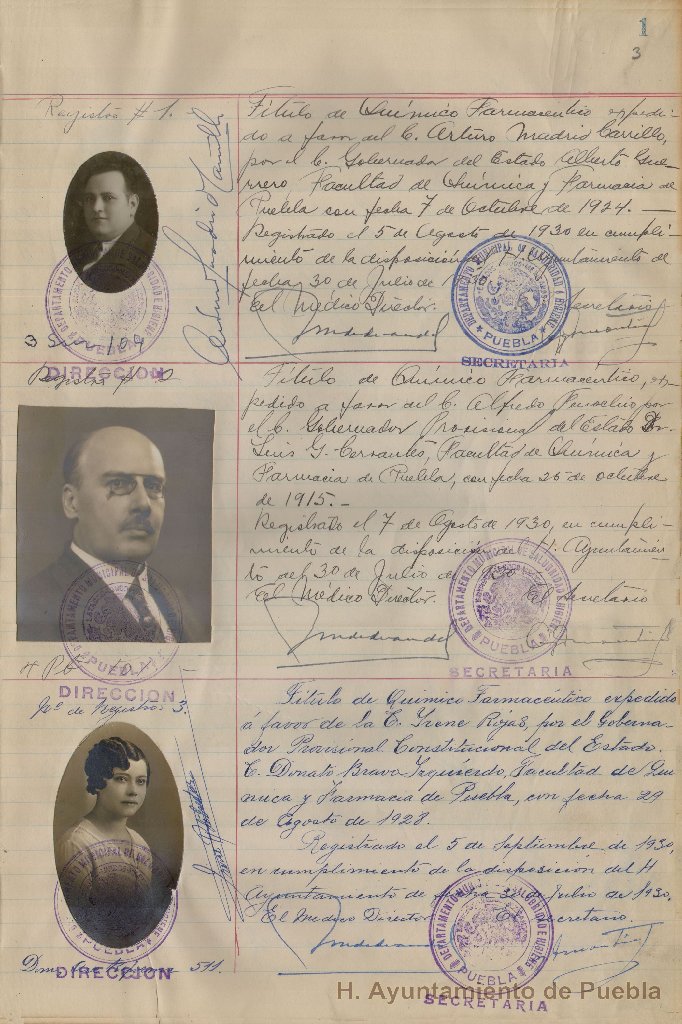 3
Registro # 1.
Título de Químico Farmaceutico expedi-
do a favor del C. Arturo Madrid Carrillo,
por el C. Gobernador del Estado Alberto Gue-
rrero, Facultad de Química y Farmacia de
Puebla con fecha 7 de Octubre de 1924. —
Registrado el 5 de Agosto de 1930 en cumpli-
miento de la disposición H. Ayuntamiento de
fecha, 30 de Julio de
El Médico Director. Secretario
DEPARTAMENTO MUNICIPAL DE SALUBRIDAD E HIGIENE
PUEBLA
SECRETARIA
DEPARTAMENTO MUNICIPAL DE SALUBRIDAD E HIGIENE
PUEBLA
DIRECCION
Registro #
Título de Químico Farmaceutico, ex-
pedido a favor del C. Alfredo por
el C. Gobernador Provisional del Estado Dr.
Luis G. Cervantes, Facultad de Química y
Farmacia de Puebla, con fecha 25 de octubre
de 1915. —
Registrado el 7 de Agosto de 1930, en cumpli-
miento de la disposición del H. Ayuntamien-
to del 30 de Julio de
El Médico Director. El Secretario
DEPARTAMENTO MUNICIPAL DE SALUBRIDAD E HIGIENE
PUEBLA
SECRETARIA
PUEBLA
DIRECCION
Nº de Registro 3.
Título de Químico Farmacéutico expedido
á favor de la C. Irene Rojas, por el Goberna-
dor Provisional Constitucional del Estado.
C. Donato Bravo Izquierdo, Facultad de Quí-
mica y Farmacia de Puebla, con fecha 29
de Agosto de 1928.
Registrado el 5 de Septiembre de 1930,
en cumplimiento de la disposicion del H
Ayuntamiento de fecha 30 de Julio de 1930,
El Medico Director El Secretario.
DEPARTAMENTO MUNICIPAL DE SALUBRIDAD E HIGIENE
PUEBLA
SECRETARIA
PUEBLA
DIRECCION
H. Ayuntamiento de Puebla